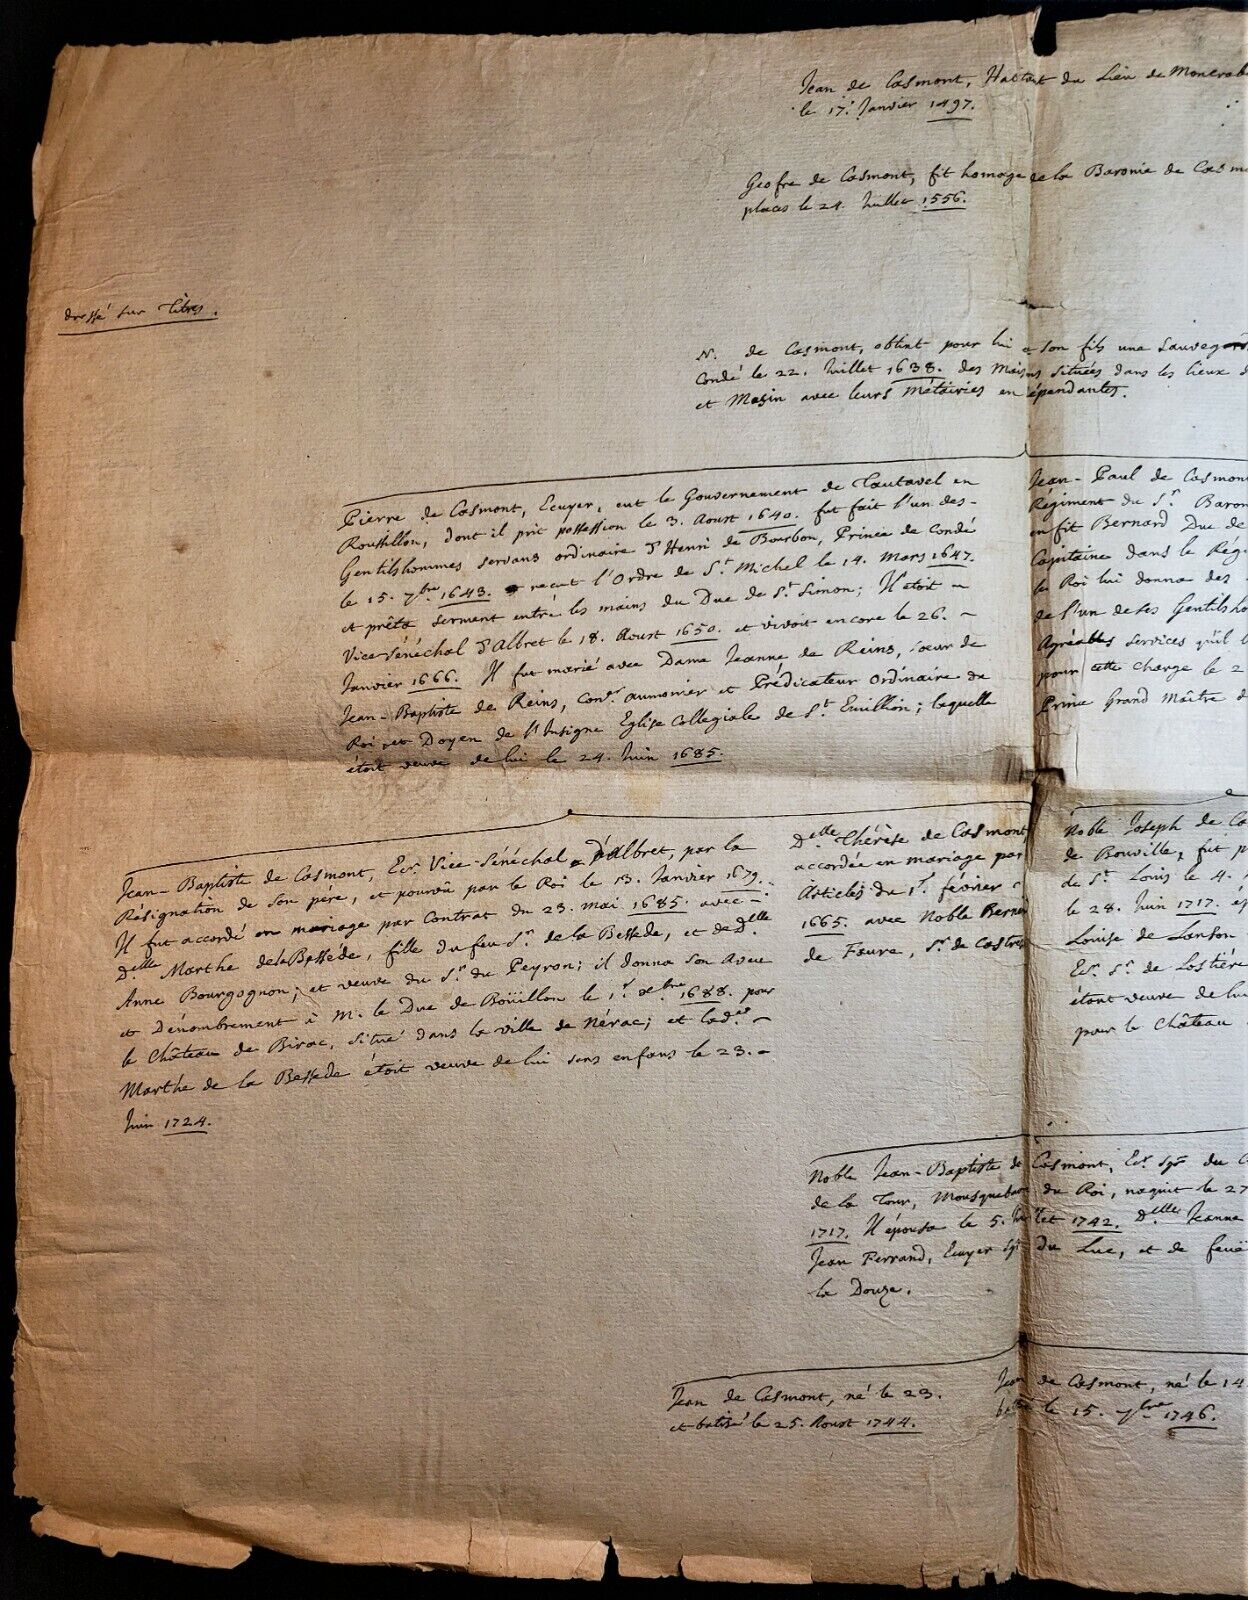 Jean de Casmont, Habitant du Lieu de Moncrab
le 17. Janvier 1497.
Geofre de Casmont, fit homage de la Baronie de Casm
places le 24. Juillet 1556.
dressé sur Titres.
N. de Casmont, obtint pour lui e son fils une Sauvegar
Condé le 22. Juillet 1638. des Maisons situées dans les lieux d
et Mezin avec leurs Métairies en dépendantes.
Pierre de Casmont, Ecuyer, eut le Gouvernement de Tautavel en
Roussillon, dont il prit possession le 3. Aoust 1640. fut fait l'un des
Gentilshommes servans ordinaire d'Henri de Bourbon, Prince de Condé
le 15. 7bre 1643. reçut l'Ordre de St. Michel le 14. Mars 1647.
et prêta serment entre les mains du Duc de St. Simon; Il étoit
Vice-Sénéchal d'Albret le 18. Aoust 1650. et vivoit encore le 26.
Janvier 1666. Il fut marié avec Dame Jeanne de Reins, soeur de
Jean-Baptiste de Reins, Conér aumonier et Prédicateur Ordinaire du
Roi, et Doyen de l'Insigne Eglise Collegiale de St. Emillion; laquelle
étoit veuve de lui le 24. Juin 1685.
Jean-Paul de Casmont
Régiment du Sr. Baron
en fit Bernard Duc de
Capitaine dans le Rég
le Roi lui donna des
de l'un de ses Gentilsho
Agréables services qu'il
pour cette charge le 2
Prince Grand Maître d
Jean-Baptiste de Casmont, Ecr. Vice-Sénéchal d'Albret, par la
Résignation de son père, et pourvû par le Roi le 13. Janvier 1679.
Il fut accordé en mariage par Contrat du 23. Mai 1685. avec
Delle Marthe de la Bessède, fille du feu Sr. de la Bessede, et de Delle
Anne Bourgognon, et veuve du Sr. du Peyron; il donna son Aveu
et Dénombrement à M. le Duc de Boüillon le 1r. debre 1688. pour
le Château de Birac, situé dans la ville de Nérac; et lad.
Marthe de la Bessede étoit veuve de lui sans enfans le 23.
Juin 1724.
Delle Thérèse de Casmont
accordée en mariage par
Articles du 1r. février
1665. avec Noble Berna
de Faure, Sr. de Castres
Noble Joseph de Ca
de Bouville, fut p
de St. Louis le 4.
le 28. Juin 1717. ép
Louise de Lanson
Ecr. Sr. de Lostière
étant veuve de lui
pour le Château
Noble Jean-Baptiste de Casmont, Ecr. Sgr du C
de la Tour, Mousquetaire du Roi, naquit le 27
1717. Il épousa le 5. Juillet 1742. Delle Jeanne
Jean Ferrand, Ecuyer Sgr Du Luc, et de feuë
la Douze.
Jean de Casmont, né le 23.
et batisé le 25. Aoust 1744.
Jean de Casmont, né le 14
batisé le 15. 7bre 1746.